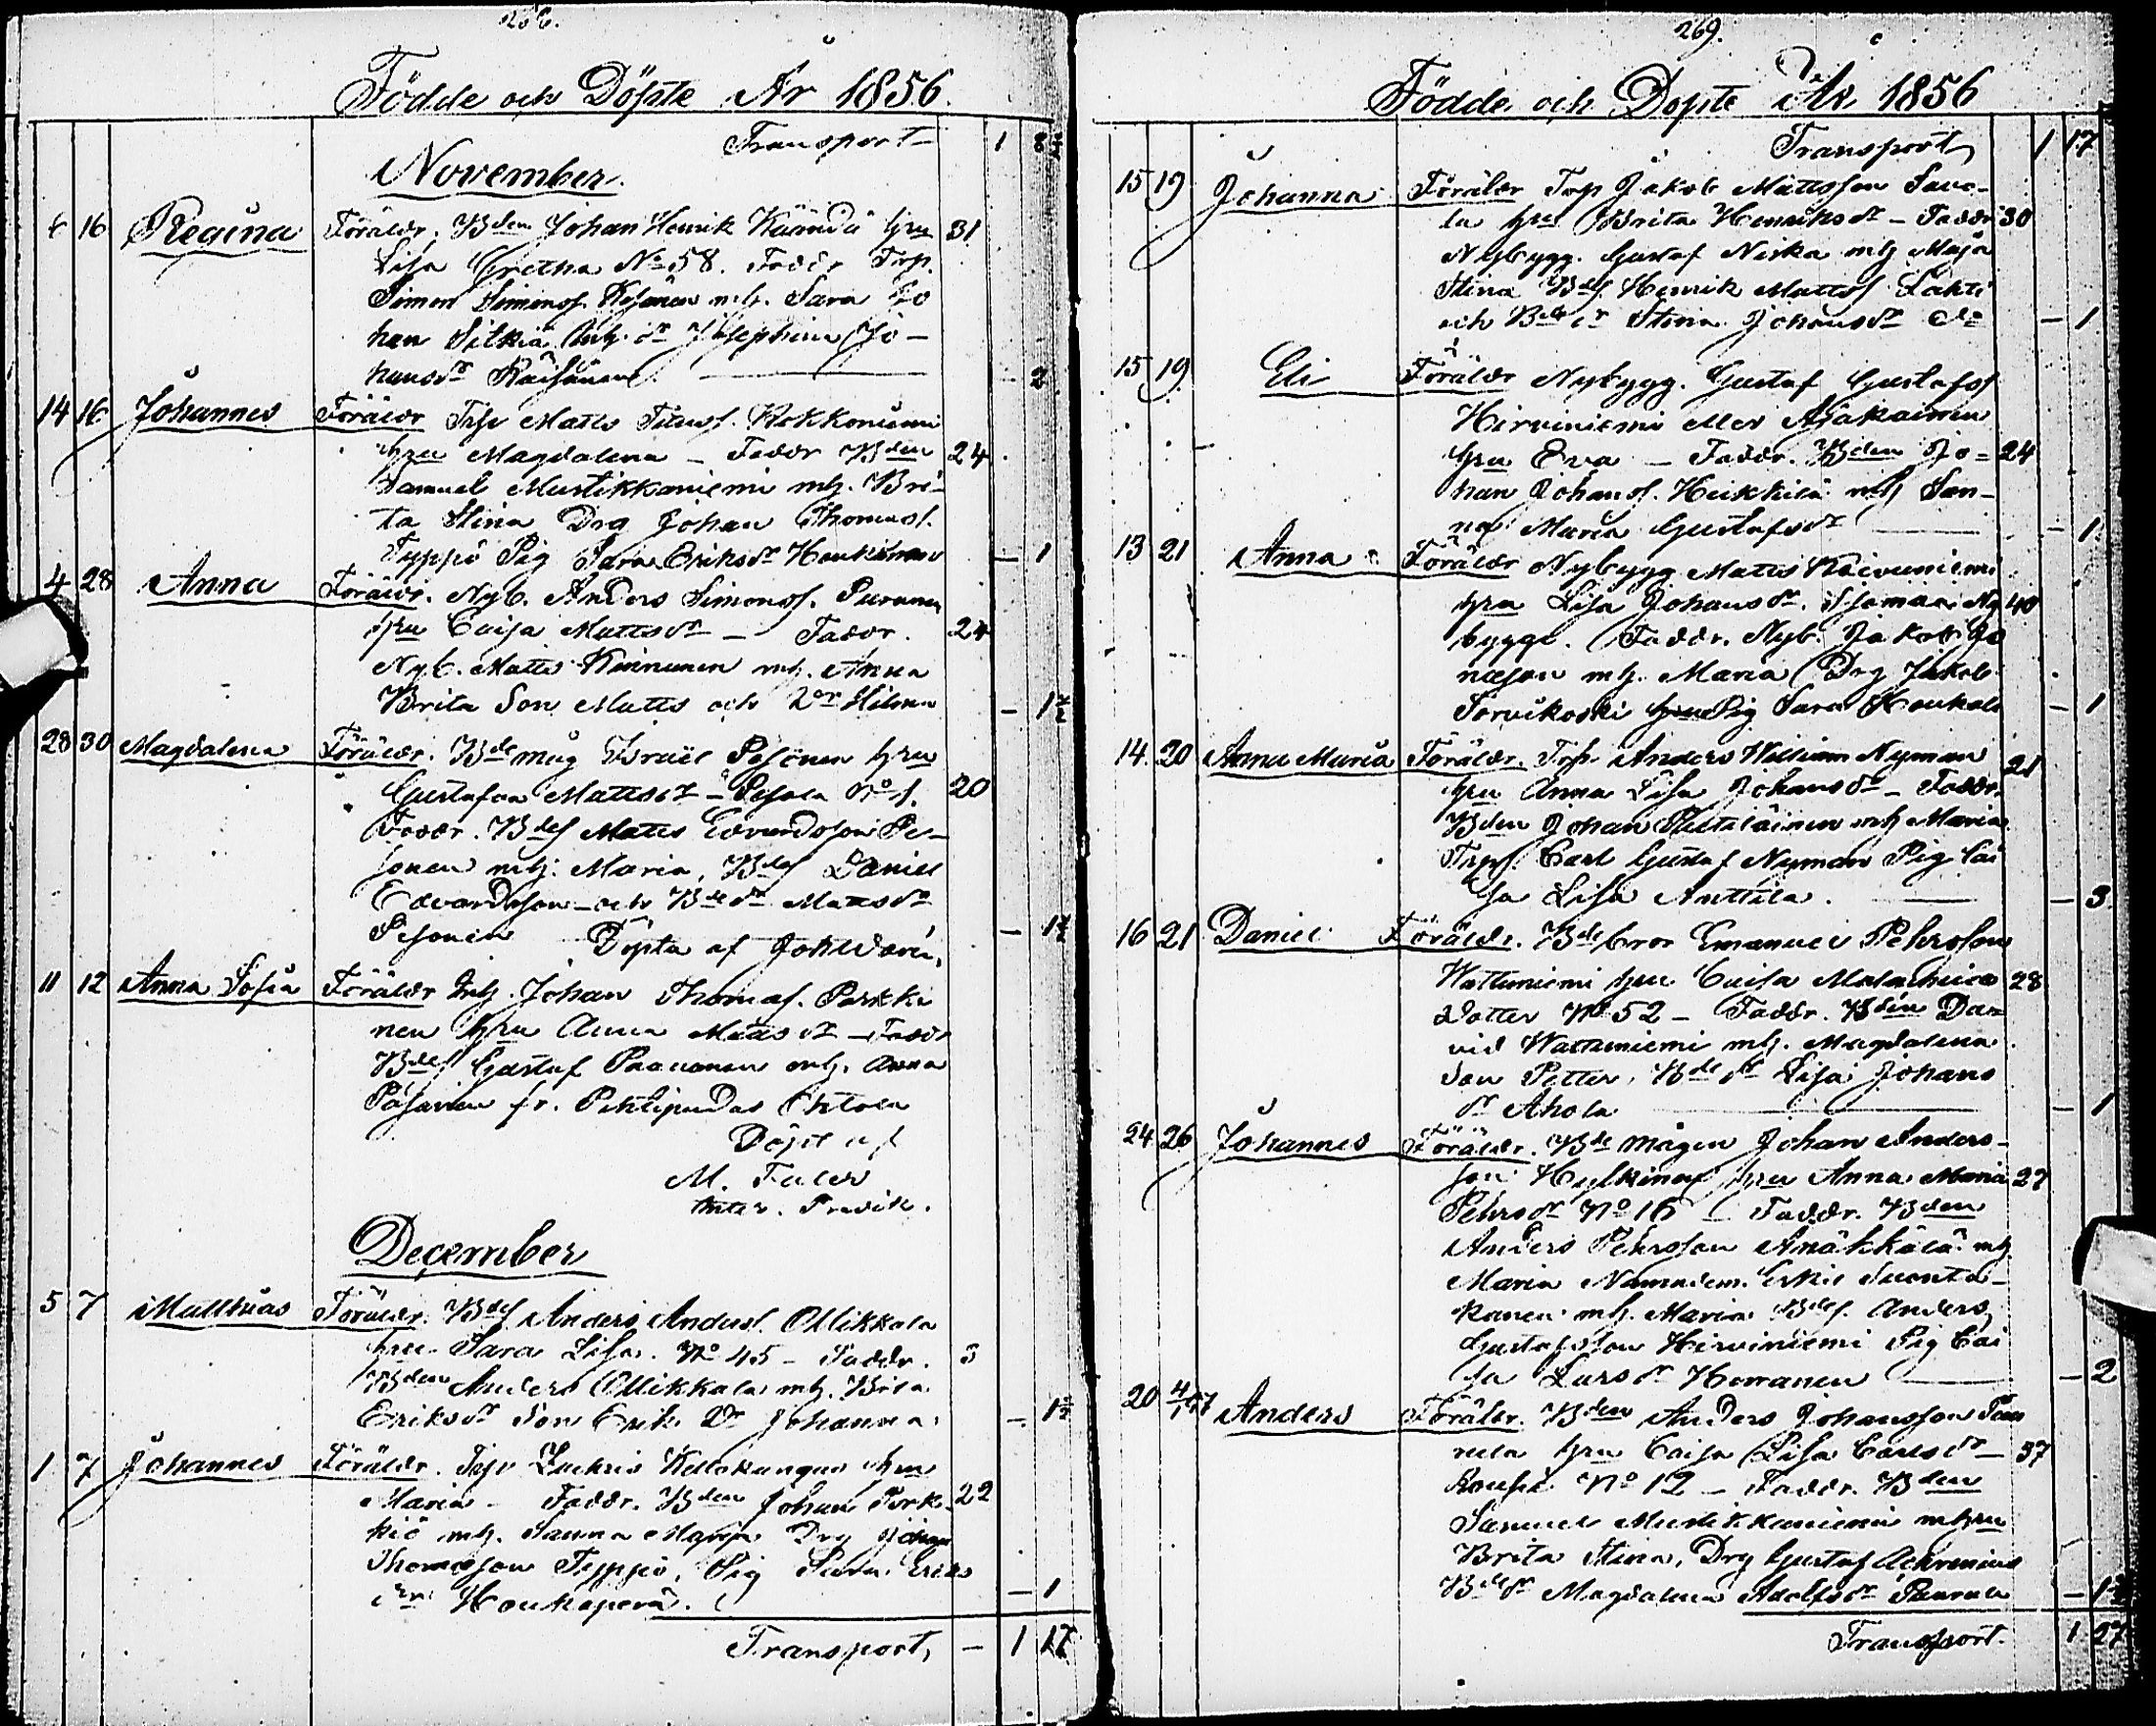 Födde och Döpte År 1856.
Transport 1 8½
November.
6 16 Regina Föräldr. Bden Johan Henrik hru 31
Lisa Gretha No 58. Faddr Trp.
Simon Simonss. mh. Sara Jo
han Silkiä Inh. dr Josephina Jo-
hansdr Räisänen 2
14 16 Johannes Föräldr Trp Matts Hokkoniemi
hru Magdalena - Faddr Bden 24
Samuel Mustikkaniemi mh. Bri-
ta Stina Drg Johan Thomass.
Typpö Pig Sara Eriksdr - 1
4 28 Anna Föräldr. Nyb. Anders Simonss. Puranen
hru Caisa Mattsdr - Faddr. 24
Nyb. Matts Kinnunen mh. Anna
Brita Son Matts och Dr Hilma - 1½
28 30 Magdalena Föräldr. Bde måg Israel Pesonen hru
Gustafva Mattsdr - Pesola No 1. 20
Faddr. Bdes Matts Edvardsson Pe-
sonen mh. Maria, Bdes Daniel
Edvardsson och Bde dr Mattsdr
Pesonen Döpta af - 1½
11 12 Anna Sofia Föräldr Inh. Johan Thomas. Parkki
nen hru Anna Matsdr - Faddr
Bdes Gustaf mh. Anna
fr.
Döpt af
M. Faler
December
5 7 Matthias Föräldr. Bdes Anders Anders. Ollikkala
hru Sara Lisa. No 45 - Faddr. 3
Bden Anders Ollikkala mh. Brita
Eriksdr Son Erik Dr Johanna - 1½
1 7 Johannes Föräldr. Trp Zachris Kellokangas hru
Maria - Faddr. Bden Johan Turk- 22
kiö mh. Sanna Maria Drg Johan
Thomasson Typpö, Pig Sara Eriks
dr Honkaperä. - 1
Transport, - 1 17
269.
Födde och Döpte År 1856
Transport 1 17
15 19 Johanna Föräldr Trp Jakob Mattsson Savo-
la hru Brita Henriksdr - Faddr 30
Nybygg. Gustaf Niska mh Maja
Stina Bdes Henrik Mattss Lahti
och Bde dr Stina Johansdr do - 1
15 19 Eli Föräldr Nybygg. Gustaf Gustafss
Hirviniemi eller Ajakainen
hru Eva - Faddr. Bden Jo= 24
han Johanss. Heikkilä mh San-
na Maria Gustafsdr - 1
13 21 Anna Föräldr Nybygg Matts Koivuniemi
hru Lisa Johansdr. Ny 40
bygge. Faddr. Nyb. Jakob Jo
nasson mh. Maria Drg Jakob
Sorvikoski Pig Sara Honkala - 1
14 20 Anna Maria Föräldr. Trp Anders William Nyman 21
hru Anna Lisa Johansdr - Faddr.
Bden Johan mh Maria
Trps. Carl Gustaf Nyman Pig Cai
sa Lisa Anttila. - 3
16 21 Daniel Föräldr. Bde bror Emanuel Pehrsson
Wattuniemi hru Caisa 28
dotter No 52 - Faddr. Bden Da=
vid Wattuniemi mh. Magdalena
Son Petter, Bde dr Lisa Johans
dr Ahola - 1
24 26 Johannes Föräldr. Bde mågen Johan Anders-
son hru Anna Maria 27
Pehrsdr No 16 - Faddr. Bden
Anders Pehrsson Anäkkälä mh
Maria Nämndem. Erkie Suonta-
kanen mh. Maria Bdes. Anders
Gustafsson Hirviniemi Pig Cai
sa Larsdr Horranen - 2
20 4/1 57 Anders Föräldr. Bden Anders Johansson
hru Caisa Lisa Carlsdr - 37
No 12 - Faddr. Bden
Samuel Mustikkaniemi m hru
Brita Stina, Drg Gustaf Achrenius
Bde dr Magdalena Adolfsdr - 1½
Transport. 1 27